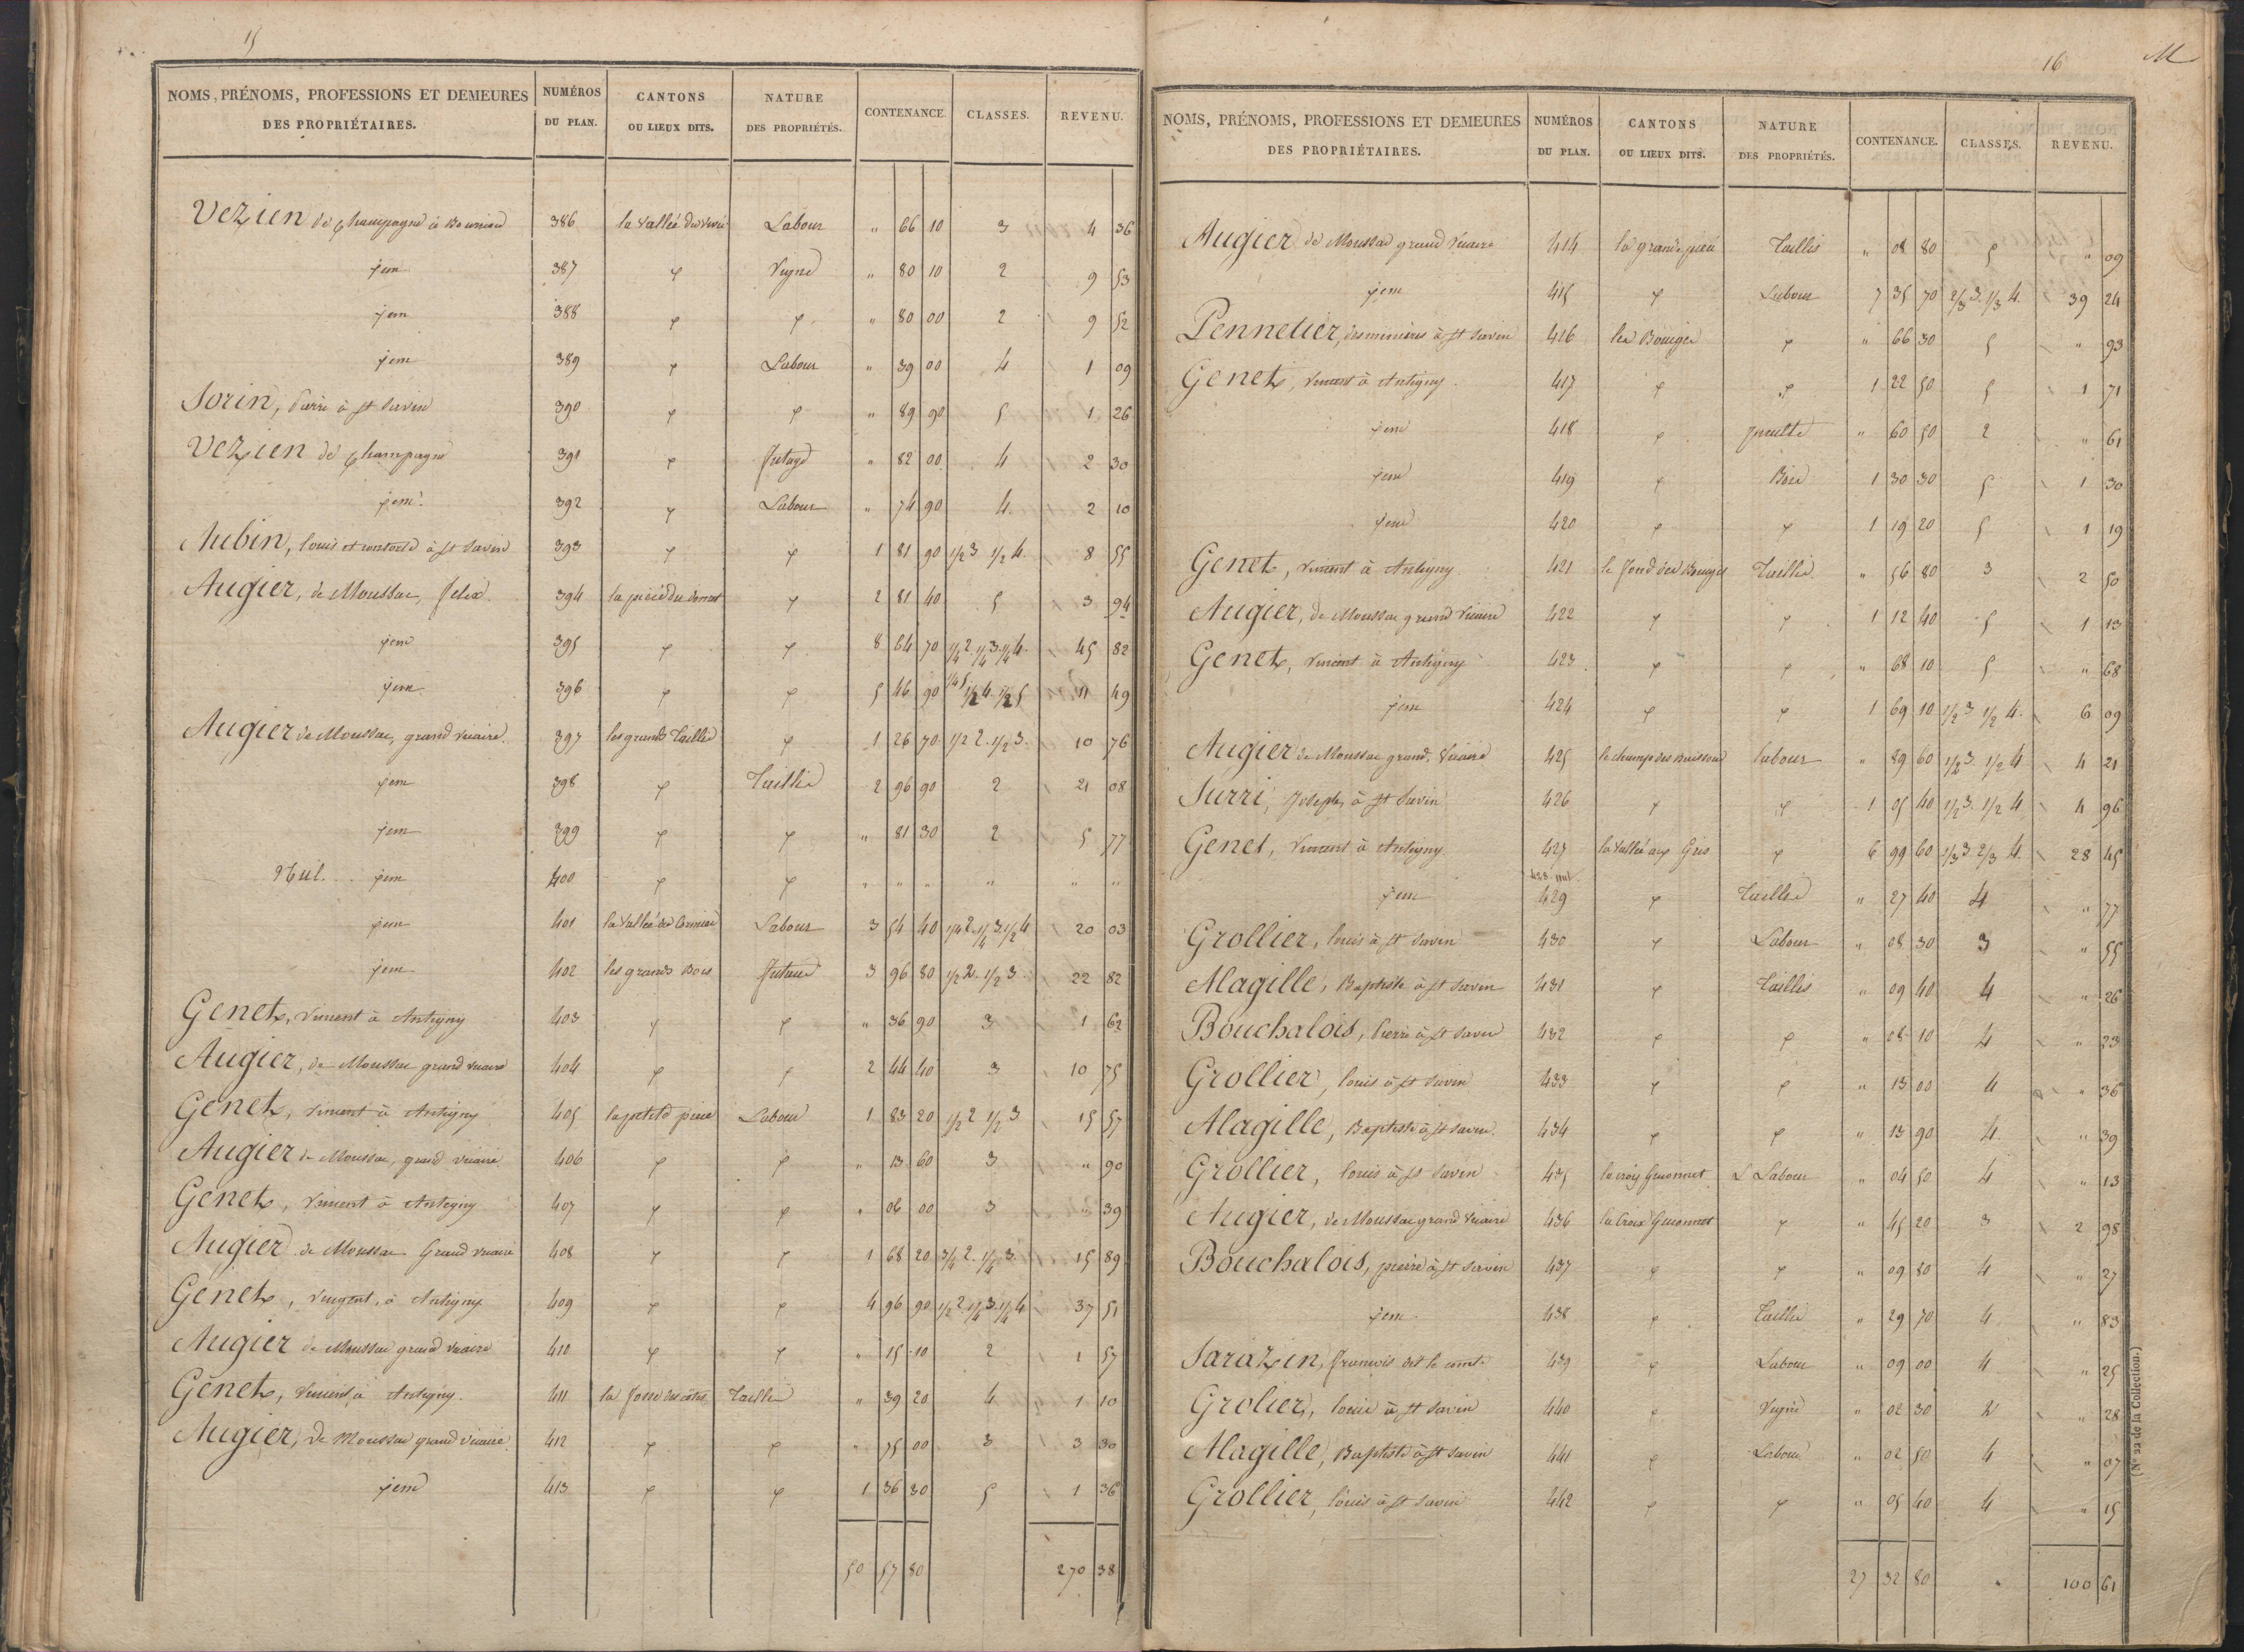 15
NOMS, PRÉNOMS, PROFESSIONS ET DEMEURES DES PROPRIÉTAIRES. NUMÉROS DU PLAN. CANTONS OU LIEUX DITS. NATURE DES PROPRIÉTÉS. CONTENANCE. CLASSES. REVENU.
Vezien de Champagne à 386 la Vallée du Labour " 66 10 3 4 36
jem 387 φ Vigne " 80 10 2 9 53
jem 388 φ φ " 80 00 2 9 52
jem 389 φ Labour " 39 00 4 1 09
Sorin, Pierre à St Savin 390 φ φ " 89 90 5 1 26
Vezien de Champagne 391 φ futaye " 82 00 4 2 30
jem 392 φ Labour " 74 90 4 2 10
Aubin, louis et à St Savin 393 φ φ 1 81 90 1/2 3 1/2 4 8 55
Augier, de Moussac, felix 394 la pièce du φ 2 81 40 5 3 94
jem 395 φ φ 8 64 70 1/4 2 1/4 3 1/4 4 45 82
jem 396 φ φ 5 46 90 1/2 4 1/2 5 11 49
Augier de Moussac, grand vicaire 397 les grands Taillis φ 1 26 70 1/2 2 1/2 3 10 76
jem 398 φ Taillis 2 96 90 2 21 08
jem 399 φ φ " 81 30 2 5 77
Nul. jem 400 φ φ " " " " " "
jem 401 la Vallée des Labour 3 54 40 1/4 2 1/4 3 1/2 4 20 03
jem 402 les grands Bois futaie 3 96 80 1/2 2 1/2 3 22 82
Genet, vincent à Antigny 403 φ φ " 36 90 3 1 62
Augier, de Moussac grand vicaire 404 φ φ 2 44 40 3 10 75
Genet, vincent à Antigny 405 la petite pièce Labour 1 83 20 1/2 2 1/2 3 15 57
Augier de Moussac, grand vicaire 406 φ φ " 13 60 3 " 90
Genet, vincent à Antigny 407 φ φ " 06 00 3 " 39
Augier de Moussac Grand vicaire 408 φ φ 1 68 20 3/4 2 1/4 3 15 89
Genet, vincent, à Antigny 409 φ φ 4 96 90 1/2 2 1/4 3 1/4 4 37 51
Augier de Moussac grand vicaire 410 φ φ " 15 10 2 1 57
Genet, vincent, à Antigny. 411 la fosse Taillis " 39 20 4 1 10
Augier, de Moussac grand vicaire 412 φ φ " 75 00 3 3 30
jem 413 φ φ 1 36 30 5 1 36
50 57 80 270 38
16
M
NOMS, PRÉNOMS, PROFESSIONS ET DEMEURES DES PROPRIÉTAIRES. NUMÉROS DU PLAN. CANTONS OU LIEUX DITS. NATURE DES PROPRIÉTÉS. CONTENANCE. CLASSES. REVENU.
Augier de Moussac grand vicaire 414 la grande Taillis " 08 80 5 " 09
jem 415 φ Labour 7 35 70 2/3 3 1/3 4 39 24
Pennetier, desminières à St Savin 416 les Bouiges φ " 66 30 5 " 93
Genet, vincent à Antigny. 417 φ φ 1 22 50 5 1 71
jem 418 φ " 60 50 2 " 61
jem 419 φ Bois 1 30 30 5 1 30
jem 420 φ φ 1 19 20 5 1 19
Genet, vincent à Antigny 421 le fond des Bouiges Taillis " 56 80 3 2 50
Augier, de Moussac grand vicaire 422 φ φ 1 12 40 5 1 13
Genet, vincent à Antigny 423 φ φ " 68 10 5 " 68
jem 424 φ φ 1 69 10 1/2 3 1/2 4 6 09
Augier de Moussac grand vicaire 425 le champ des Buissons labour " 89 60 1/2 3 1/2 4 4 21
Surri, Joseph, à St Savin 426 φ φ 1 05 40 1/2 3 1/2 4 4 96
Genet, vincent à Antigny 427 la Vallée aux Gris φ 6 99 60 1/3 3 2/3 4 28 45
428 nul
jem 429 φ Taillis " 27 40 4 " 77
Grollier, louis à St Savin 430 φ Labour " 08 30 3 " 55
Magille, Baptiste à St Savin 431 φ Taillis " 09 40 4 " 26
Bouchalois, Pierre à St Savin 432 φ φ " 08 10 4 " 23
Grollier, louis à St Savin 433 φ φ " 13 00 4 " 36
Magille, Baptiste à St Savin. 434 φ φ " 13 90 4 " 39
Grollier, louis à St Savin 435 la croix Guionnet Labour " 04 50 4 " 13
Augier, de Moussac grand vicaire 436 la Croix Guionnet φ " 45 20 3 2 98
Bouchalois, pierre à St Savin 437 φ φ " 09 80 4 " 27
jem 438 φ Taillis " 29 70 4 " 83
Sarazin, francois dit le comte 439 φ Labour " 09 00 4 " 25
Grolier, louis à St Savin 440 φ Vigne " 02 30 2 " 28
Magille, Baptiste à St Savin 441 φ Labour " 02 50 4 " 07
Grollier, louis à St Savin 442 φ φ " 05 40 4 " 15
27 32 80 " 100 61
(N° 22 de la Collection.)